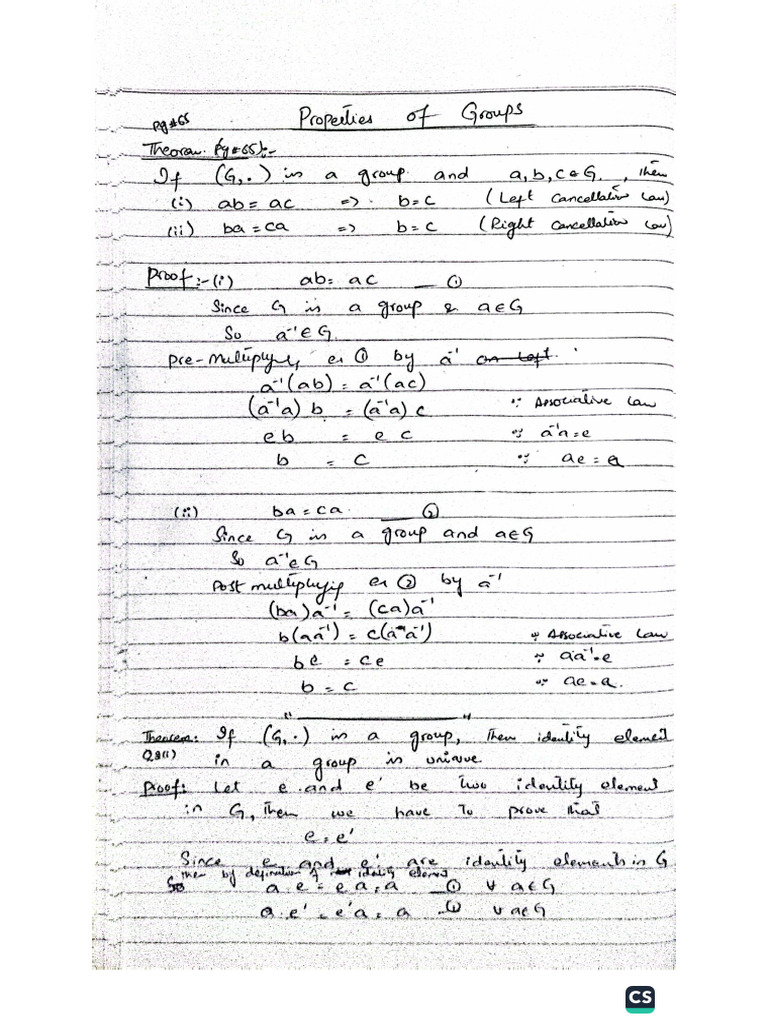 Pg#65 Properties of Groups
Theorem (Pg#65):-
If (G,.) is a group and a,b,c∈G, then
(i) ab=ac => b=c (Left Cancellation law)
(ii) ba=ca => b=c (Right Cancellation law)
Proof:-(i) ab=ac __ ①
Since G is a group & a∈G
So a⁻¹∈G
Pre-multiplying eq ① by a⁻¹ on left.
a⁻¹(ab) = a⁻¹(ac)
(a⁻¹a) b = (a⁻¹a) c ∵ Associative Law
eb = ec ∵ a⁻¹a=e
b = c ∵ ae=a
(ii) ba=ca __ ②
Since G is a group and a∈G
So a⁻¹∈G
Post multiplying eq ② by a⁻¹
(ba)a⁻¹ = (ca)a⁻¹
b(aa⁻¹) = c(a⁻¹a⁻¹) ∵ Associative Law
be = ce ∵ aa⁻¹=e
b=c ∵ ae=a.
Theorem: If (G,.) is a group, then identity element
Q3(i) in a group is unique
Proof: Let e and e' be two identity element
in G, then we have to prove that
e=e'
Since e and e' are identity elements in G
then by definition of identity element
So a.e = ea = a __ ① ∀ a∈G
a.e' = e'a = a __ ∀ a∈G
CS